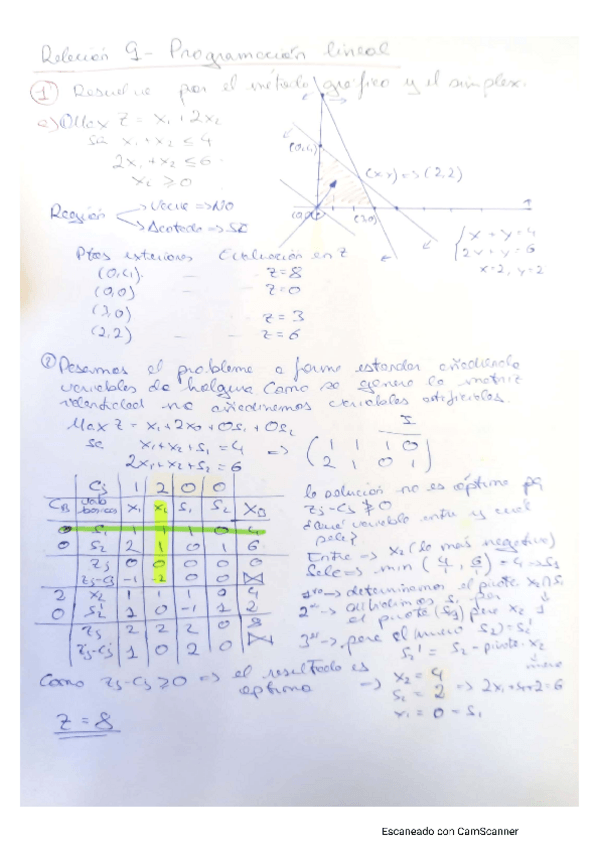 Relación 9 - Programación lineal
① Resuelve por el método gráfico y el simplex.
a) Max Z = x₁ + 2x₂
s.a. x₁ + x₂ ≤ 4
2x₁ + x₂ ≤ 6
x₂ ≥ 0
(0,4)
(x,y) => (2,2)
(0,0)
(3,0)
Región → Vacía => NO
→ Acotada => SI
{ x + y = 4
2x + y = 6
x=2, y=2
Ptos exteriores Evaluación en Z
(0,4) Z=8
(0,0) Z=0
(3,0) Z=3
(2,2) Z=6
② Pasamos el problema a forma estándar añadiendo
variables de holgura. Como se genera la matriz
identidad no añadiremos variables artificiales.
Max Z = x₁ + 2x₂ + 0s₁ + 0s₂
sa x₁ + x₂ + s₁ = 4
2x₁ + x₂ + s₂ = 6
=> ( 1 1 1 0
2 1 0 1 )
I
Cj 1 2 0 0
CB Vab básicas x₁ x₂ s₁ s₂ XB
0 s₁ 1 1 1 0 4
0 s₂ 2 1 0 1 6
zj 0 0 0 0 0
zj-cj -1 -2 0 0
2 x₂ 1 1 1 0 4
0 s₂' 1 0 -1 1 2
zj 2 2 2 0 8
zj-cj 1 0 2 0
la solución no es óptima pq
zj - cj ≱ 0
¿Qué variable entra y cuál
sale?
Entra => x₂ (la más negativa)
Sale => min (4/1, 6/1) = 4 => s₁
1º -> determinamos el pivote x₂ ∩ s₁
2º -> dividimos s₁ por
el pivote (s₁) para x₂
3º ->, para el nuevo s₂) = s₂'
s₂' = s₂ - pivote · x₂
nueva
Como zj-cj ≥ 0 => el resultado es
óptimo
=> x₂ = 4
s₂ = 2 =>
x₁ = 0 = s₁
Z = 8
Escaneado con CamScanner